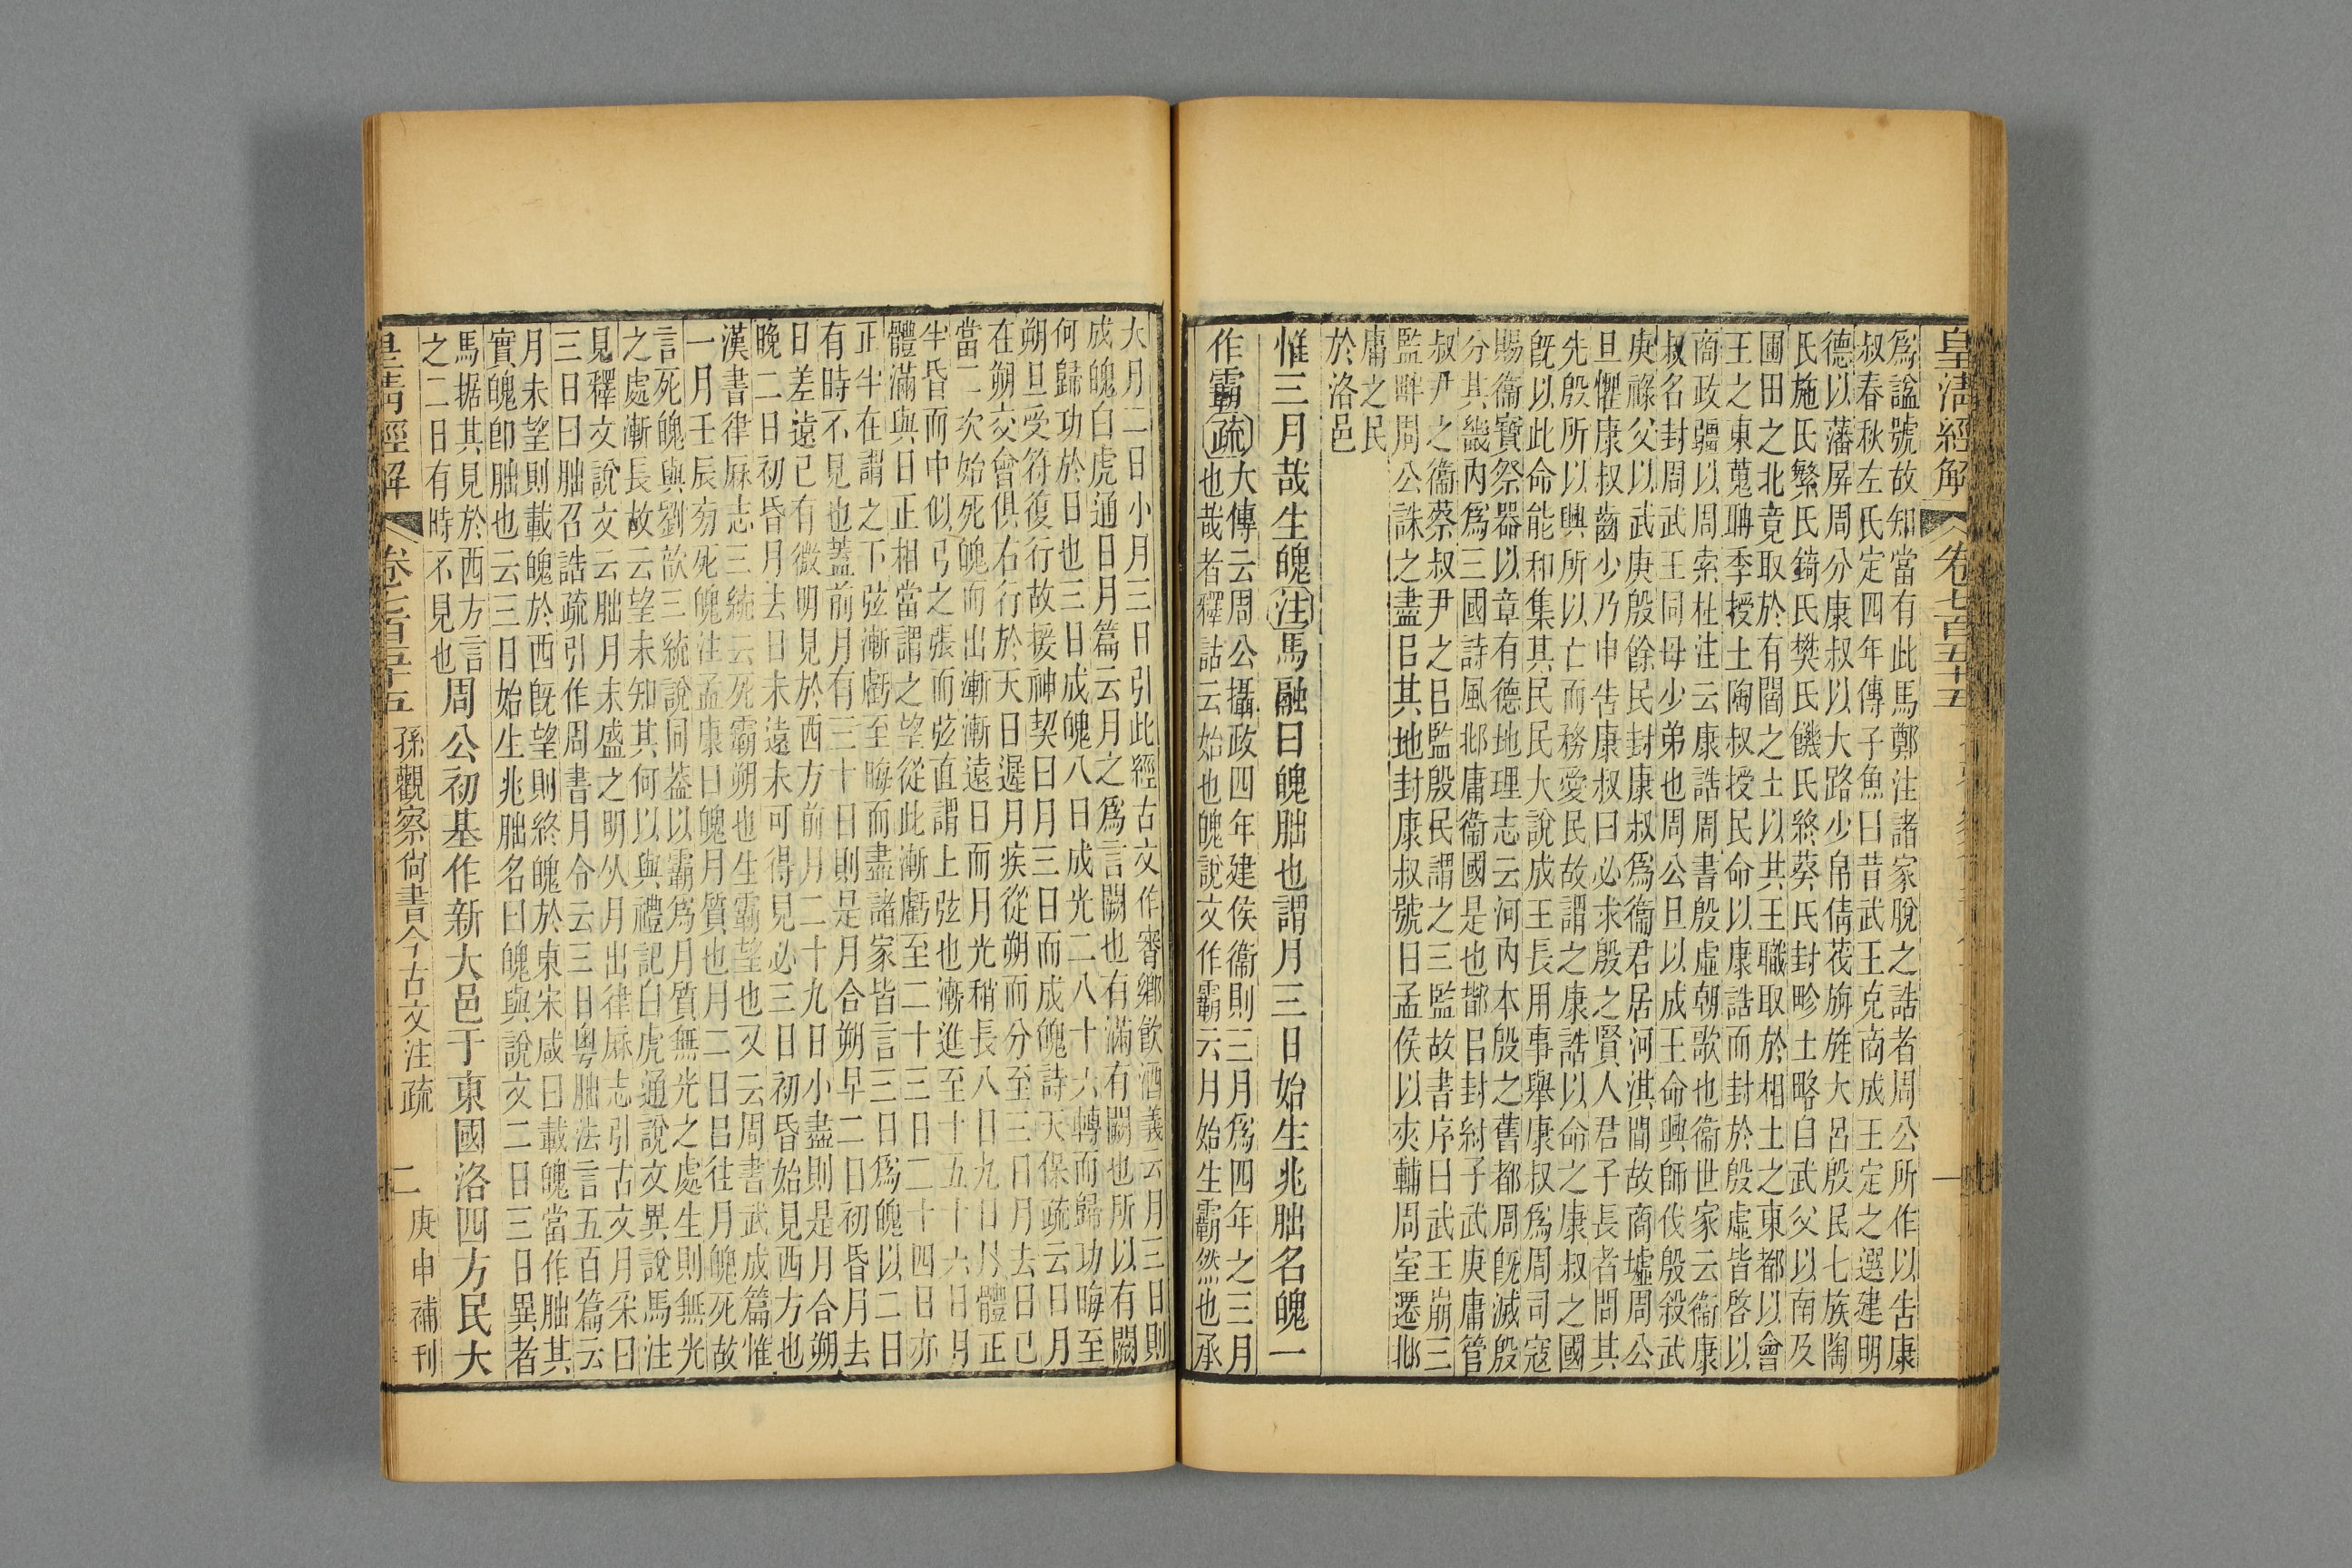 皇清經解 卷七百五十五 一
爲諡號故知當有此馬鄭注諸家脫之誥者周公所作以告康
叔春秋左氏定四年傳子魚曰昔武王克商成王定之選建明
德以藩屏周分康叔以大路少帛綪茷旃旌大呂殷民七族陶
氏施氏繁氏錡氏樊氏饑氏終葵氏封畛土略自武父以南及
圃田之北竟取於有閻之土以其王職取於相土之東都以會
王之東蒐聃季授土陶叔授民命以康誥而封於殷虛皆啓以
商政疆以周索杜注云康誥周書殷虛朝歌也衞世家云衞康
叔名封周武王同母少弟也周公旦以成王命興師伐殷殺武
庚祿父以武庚殷餘民封康叔爲衞君居河淇閒故商墟周公
旦懼康叔齒少乃申告康叔曰必求殷之賢人君子長者問其
先殷所以興所以亡而務愛民故謂之康誥以命之康叔之國
旣以此命能和集其民民大說成王長用事舉康叔爲周司寇
賜衞寶祭器以章有德地理志云河內本殷之舊都周旣滅殷
分其畿內爲三國詩風邶庸衞國是也鄁㠯封紂子武庚庸管
叔尹之衞蔡叔尹之㠯監殷民謂之三監故書序曰武王崩三
監畔周公誅之盡㠯其地封康叔號曰孟侯以夾輔周室遷邶
庸之民
於洛邑
惟三月哉生魄注馬融曰魄朏也謂月三日始生兆朏名魄一
作霸疏大傳云周公攝政四年建侯衞則三月爲四年之三月
也哉者釋詁云始也魄說文作霸云月始生霸然也承
大月二日小月三日引此經古文作審鄉飲酒義云月三日則
成魄白虎通日月篇云月之爲言闕也有滿有闕也所以有闕
何歸功於日也三日成魄八日成光二八十六轉而歸功晦至
朔旦受符復行故援神契曰月三日而成魄詩天保疏云日月
在朔交會俱右行於天日遲月疾從朔而分至三日月去日已
當二次始死魄而出漸漸遠日而月光稍長八日九日月體正
半昏而中似弓之張而弦直謂上弦也漸進至十五十六日月
體滿與日正相當謂之望從此漸虧至二十三日二十四日亦
正半在謂之下弦漸虧至晦而盡諸家皆言三日爲魄以二日
有時不見也蓋前月有三十日則是月合朔早二日初昏月去
日差遠已有微明見於西方前月二十九日小盡則是月合朔
晚二日初昏月去日未遠未可得見必三日初昏始見西方也
漢書律厤志三統云死霸朔也生霸望也又云周書武成篇惟
一月壬辰㫄死魄注孟康曰魄月質也月二日㠯往月魄死故
言死魄與劉歆三統說同葢以霸爲月質無光之處生則無光
之處漸長故云望未知其何以與禮記白虎通說文異說馬注
見釋文說文云朏月未盛之明从月出律厤志引古文月采曰
三日曰朏召誥疏引作周書月令云三日粵朏法言五百篇云
月未望則載魄於西旣望則終魄於東宋咸曰載魄當作朏其
實魄卽朏也云三日始生兆朏名曰魄與說文二日三日異者
馬据其見於西方言
之二日有時不見也周公初基作新大邑于東國洛四方民大
皇清經解 卷七百五十五 孫觀察尙書今古文注疏 二 庚申補刊